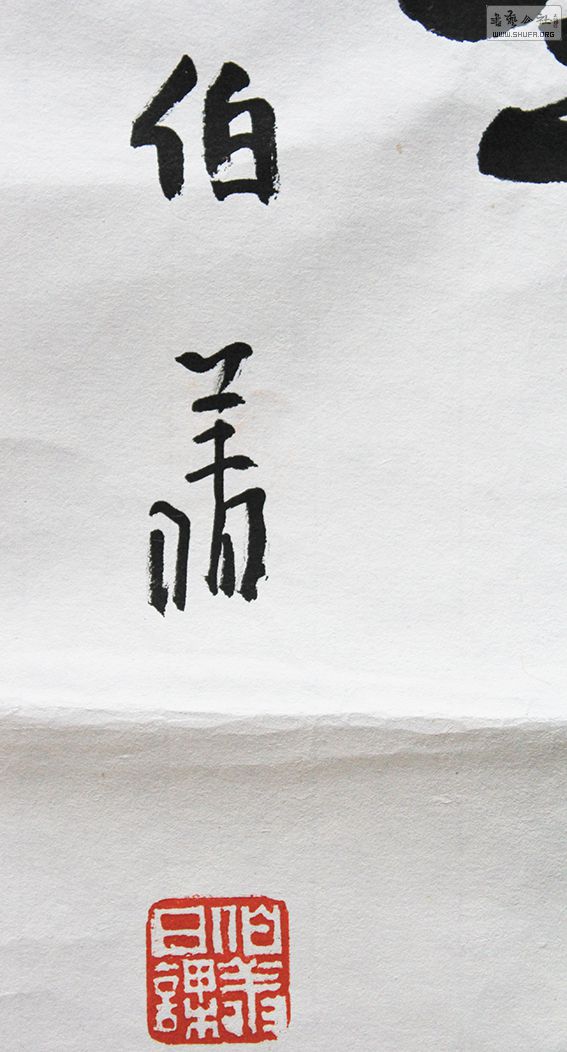 伯翔
伯翔日課
书艺公社
WWW.SHUFA.ORG